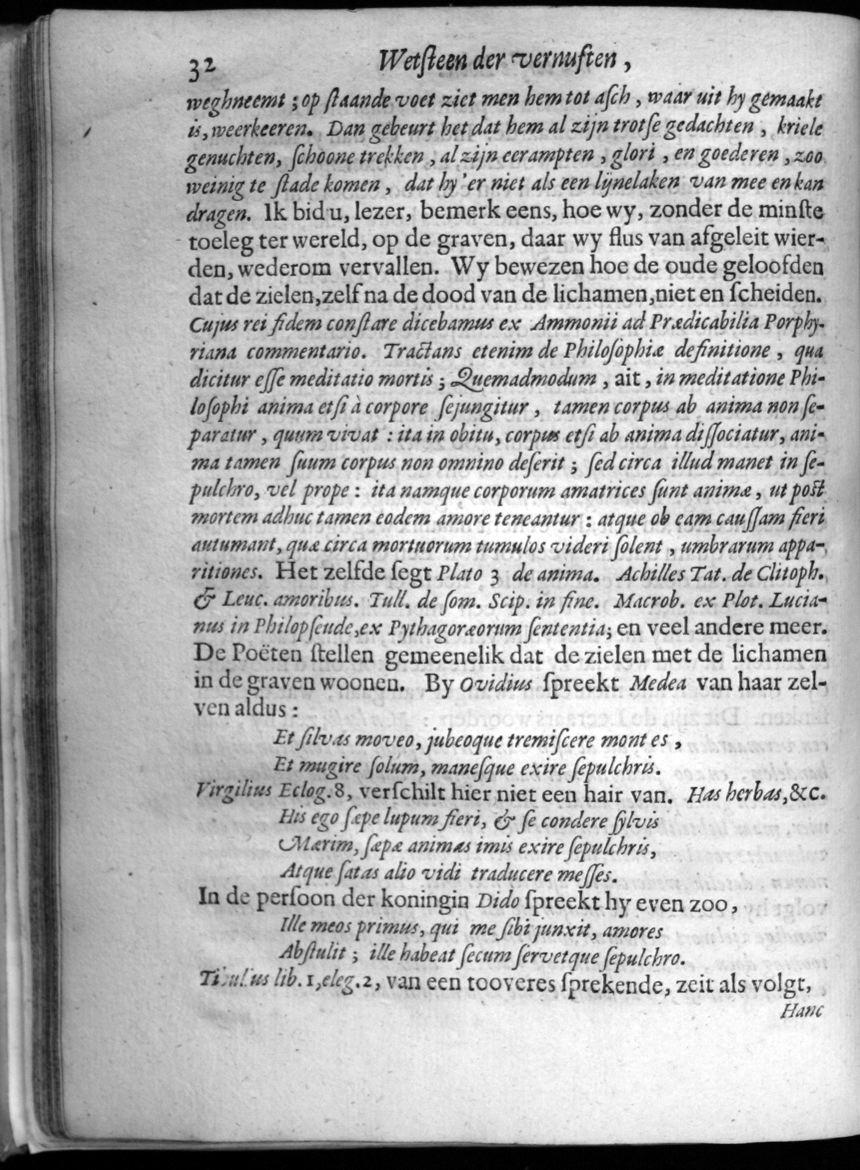 32 Wetſteen der vernuften ,
weghneemt ; op ſtaande voet ziet men hem tot aſch , waar uit hy gemaakt
is, weerkeeren. Dan gebeurt het dat hem al zijn trotſe gedachten , kriele
genuchten, ſchoone trekken , al zijn eerampten , glori , en goederen , zoo
weinig te ſtade komen , dat hy 'er niet als een lijnelaken van mee en kan
dragen. Ik bid u, lezer, bemerk eens, hoe wy, zonder de minſte
toeleg ter wereld, op de graven, daar wy flus van afgeleit wier-
den, wederom vervallen. Wy bewezen hoe de oude geloofden
dat de zielen, zelf na de dood van de lichamen, niet en ſcheiden.
Cujus rei fidem conſtare dicebamus ex Ammonii ad Prædicabilia Porphy-
riana commentario. Tractans etenim de Philoſophiæ definitione , qua
dicitur eſſe meditatio mortis ; Quemadmodum , ait , in meditatione Phi-
loſophi anima etſi à corpore ſejungitur , tamen corpus ab anima non ſe-
paratur , quum vivat : ita in obitu, corpus etſi ab anima diſſociatur, ani-
ma tamen ſuum corpus non omnino deſerit ; ſed circa illud manet in ſe-
pulchro, vel prope : ita namque corporum amatrices ſunt animæ , ut poſt
mortem adhuc tamen eodem amore teneantur : atque ob eam cauſſam fieri
autumant, quæ circa mortuorum tumulos videri ſolent , umbrarum appa-
ritiones. Het zelfde ſegt Plato 3 de anima. Achilles Tat. de Clitoph.
& Leuc. amoribus. Tull. de ſom. Scip. in fine. Macrob. ex Plot. Lucia-
nus in Philopſeude, ex Pythagoræorum ſententia; en veel andere meer.
De Poëten ſtellen gemeenelik dat de zielen met de lichamen
in de graven woonen. By Ovidius ſpreekt Medea van haar zel-
ven aldus :
Et ſilvas moveo, jubeoque tremiſcere montes ,
Et mugire ſolum, maneſque exire ſepulchris.
Virgilius Eclog. 8, verſchilt hier niet een hair van. Has herbas, &c.
His ego ſæpe lupum fieri, & ſe condere ſylvis
Mærim, ſæpæ animas imis exire ſepulchris,
Atque ſatas alio vidi traducere meſſes.
In de perſoon der koningin Dido ſpreekt hy even zoo ,
Ille meos primus, qui me ſibi junxit, amores
Abſtulit ; ille habeat ſecum ſervetque ſepulchro.
Tibullus lib. 1, eleg. 2, van een tooveres ſprekende, zeit als volgt,
Hanc